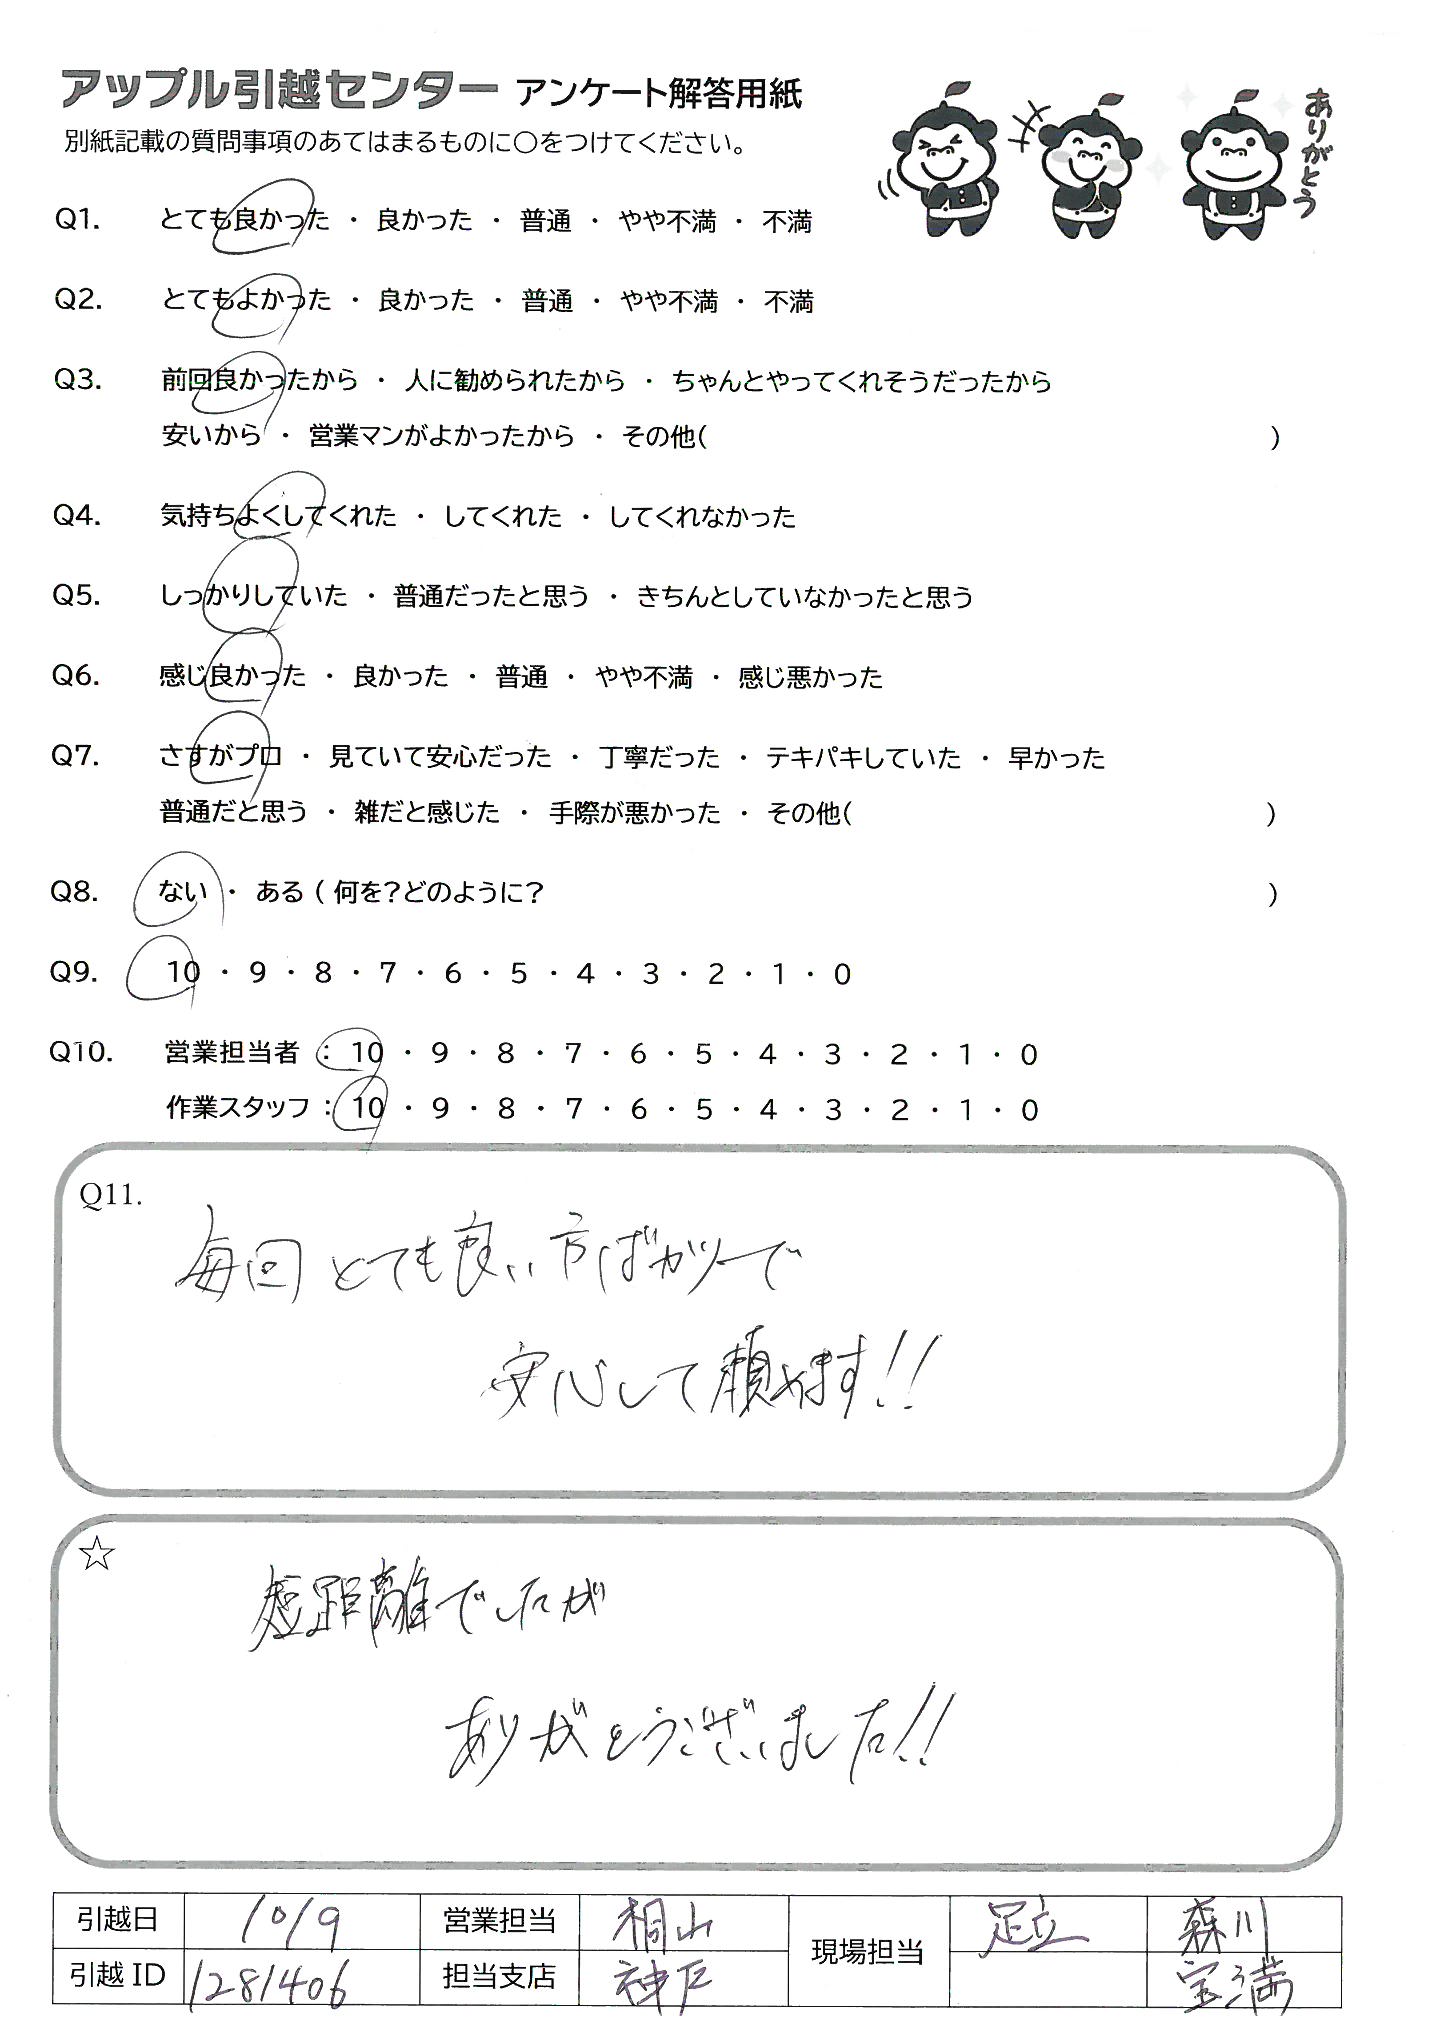 アップル引越センター アンケート解答用紙
ありがとう
別紙記載の質問事項のあてはまるものに○をつけてください。
Q1. とても良かった ・ 良かった ・ 普通 ・ やや不満 ・ 不満
Q2. とてもよかった ・ 良かった ・ 普通 ・ やや不満 ・ 不満
Q3. 前回良かったから ・ 人に勧められたから ・ ちゃんとやってくれそうだったから
安いから ・ 営業マンがよかったから ・ その他( )
Q4. 気持ちよくしてくれた ・ してくれた ・ してくれなかった
Q5. しっかりしていた ・ 普通だったと思う ・ きちんとしていなかったと思う
Q6. 感じ良かった ・ 良かった ・ 普通 ・ やや不満 ・ 感じ悪かった
Q7. さすがプロ ・ 見ていて安心だった ・ 丁寧だった ・ テキパキしていた ・ 早かった
普通だと思う ・ 雑だと感じた ・ 手際が悪かった ・ その他( )
Q8. ない ・ ある ( 何を?どのように? )
Q9. 10 ・ 9 ・ 8 ・ 7 ・ 6 ・ 5 ・ 4 ・ 3 ・ 2 ・ 1 ・ 0
Q10. 営業担当者 : 10 ・ 9 ・ 8 ・ 7 ・ 6 ・ 5 ・ 4 ・ 3 ・ 2 ・ 1 ・ 0
作業スタッフ : 10 ・ 9 ・ 8 ・ 7 ・ 6 ・ 5 ・ 4 ・ 3 ・ 2 ・ 1 ・ 0
Q11.
毎回とても良い方ばかりで
安心して頼めます!!
☆
短距離でしたが
ありがとうございました!!
引越日 10/9 営業担当 桐山 現場担当 足立 森川
引越ID 1281406 担当支店 神戸 宝満